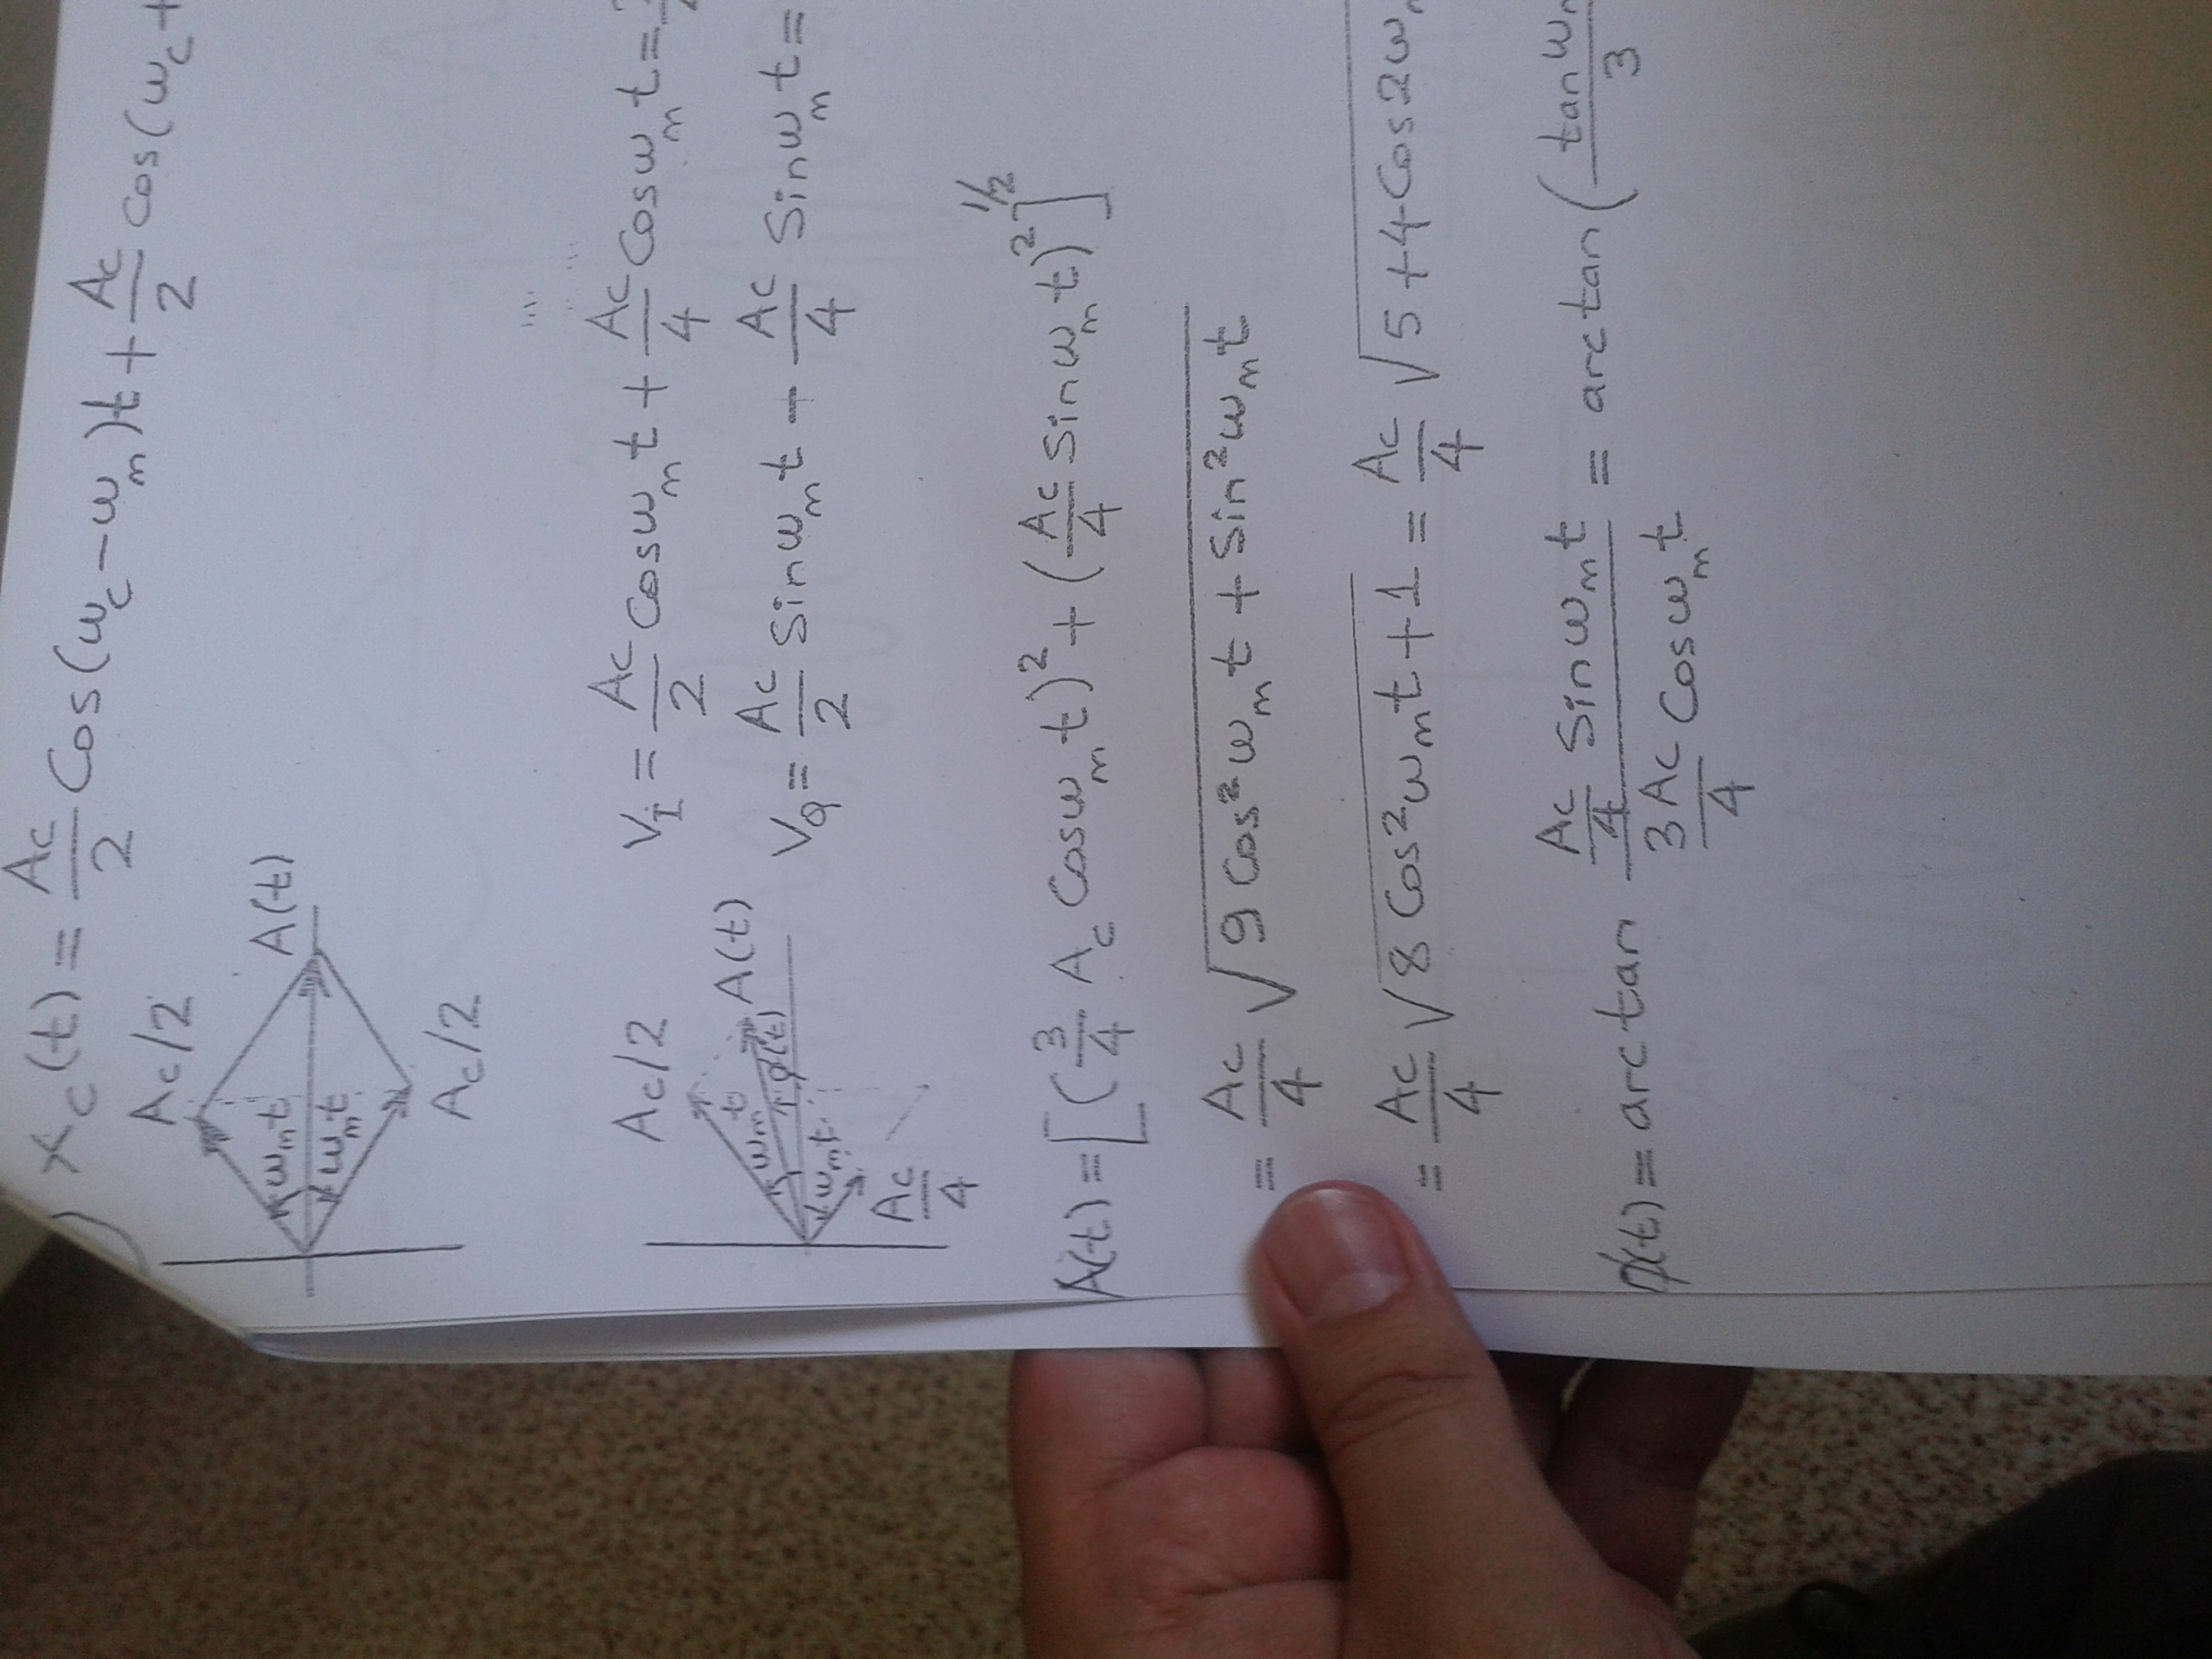 ) x_c(t) = Ac/2 Cos(ω_c - ω_m)t + Ac/2 cos(ω_c +
Ac/2
A(t)
ω_m t
ω_m t
Ac/2
V_I = Ac/2 Cosω_m t + Ac/4 Cosω_m t =
Ac/2
V_Q = Ac/2 Sinω_m t - Ac/4 Sinω_m t =
A(t)
ω_m t
φ(t)
ω_m t
Ac/4
A(t) = [(3/4 A_c Cosω_m t)² + (Ac/4 Sinω_m t)²]^1/2
= Ac/4 √9 Cos²ω_m t + Sin²ω_m t
= Ac/4 √8 Cos²ω_m t + 1 = Ac/4 √5 + 4 Cos2ω_m
φ(t) = arctan Ac/4 Sinω_m t / 3Ac/4 Cosω_m t = arctan ( tanω_m / 3